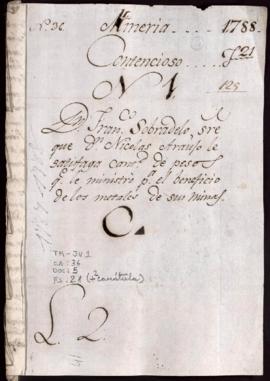 N.º 36 Mineria .... 1788
Contencioso ... f 21
125
N 1
Dn. Franco. Sobradelo, sre
que Dn. Nicolas Arauso le
satisfaga cantd. de pesos
qe. le ministro pa. el beneficio
de los metales de sus minas
C
TM-JU 1
CA: 36
DOC: 5
Fs: 21 (+ 2 carátula)
L. 2